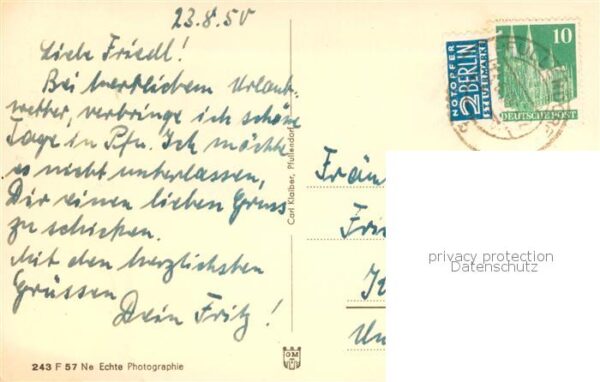 23.8.50
Liebe Friedl!
Bei herrlichem Urlaubs-
wetter, verbringe ich schöne
Tage in Pfu. Ich möchte
es nicht unterlassen,
Dir einen lieben Gruss
zu schicken.
Mit den herzlichsten
Grüssen
Dein Fritz!
243 F 57 Ne Echte Photographie
Carl Klaiber, Pfullendorf
GM
NOTOPFER
2 BERLIN
STEUERMARKE
10
DEUTSCHE POST
Fräu
Frie
Un
privacy protection
Datenschutz